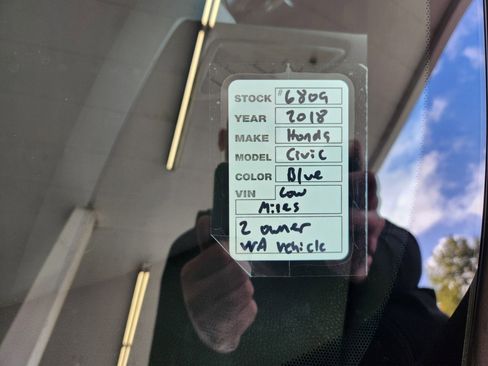 STOCK #6809
YEAR 2018
MAKE Honda
MODEL Civic
COLOR Blue
VIN Low
Miles
2 owner
WA vehicle